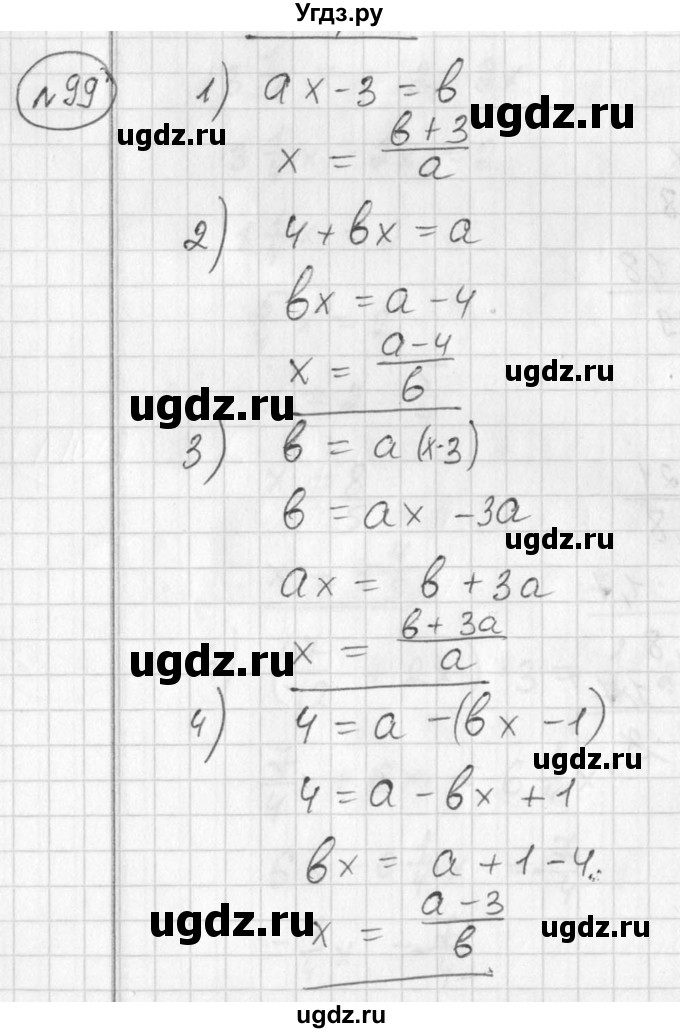 Угдз.ру
№99
1) ax - 3 = b
ugdz.ru
ugdz.ru
x = (b + 3)/a
2) 4 + bx = a
bx = a - 4
x = (a - 4)/b
ugdz.ru
ugdz.ru
3) b = a(x - 3)
b = ax - 3a
ugdz.ru
ax = b + 3a
x = (b + 3a)/a
ugdz.ru
4) 4 = a - (bx - 1)
ugdz.ru
4 = a - bx + 1
bx = a + 1 - 4
x = (a - 3)/b
ugdz.ru
ugdz.ru
ugdz.ru